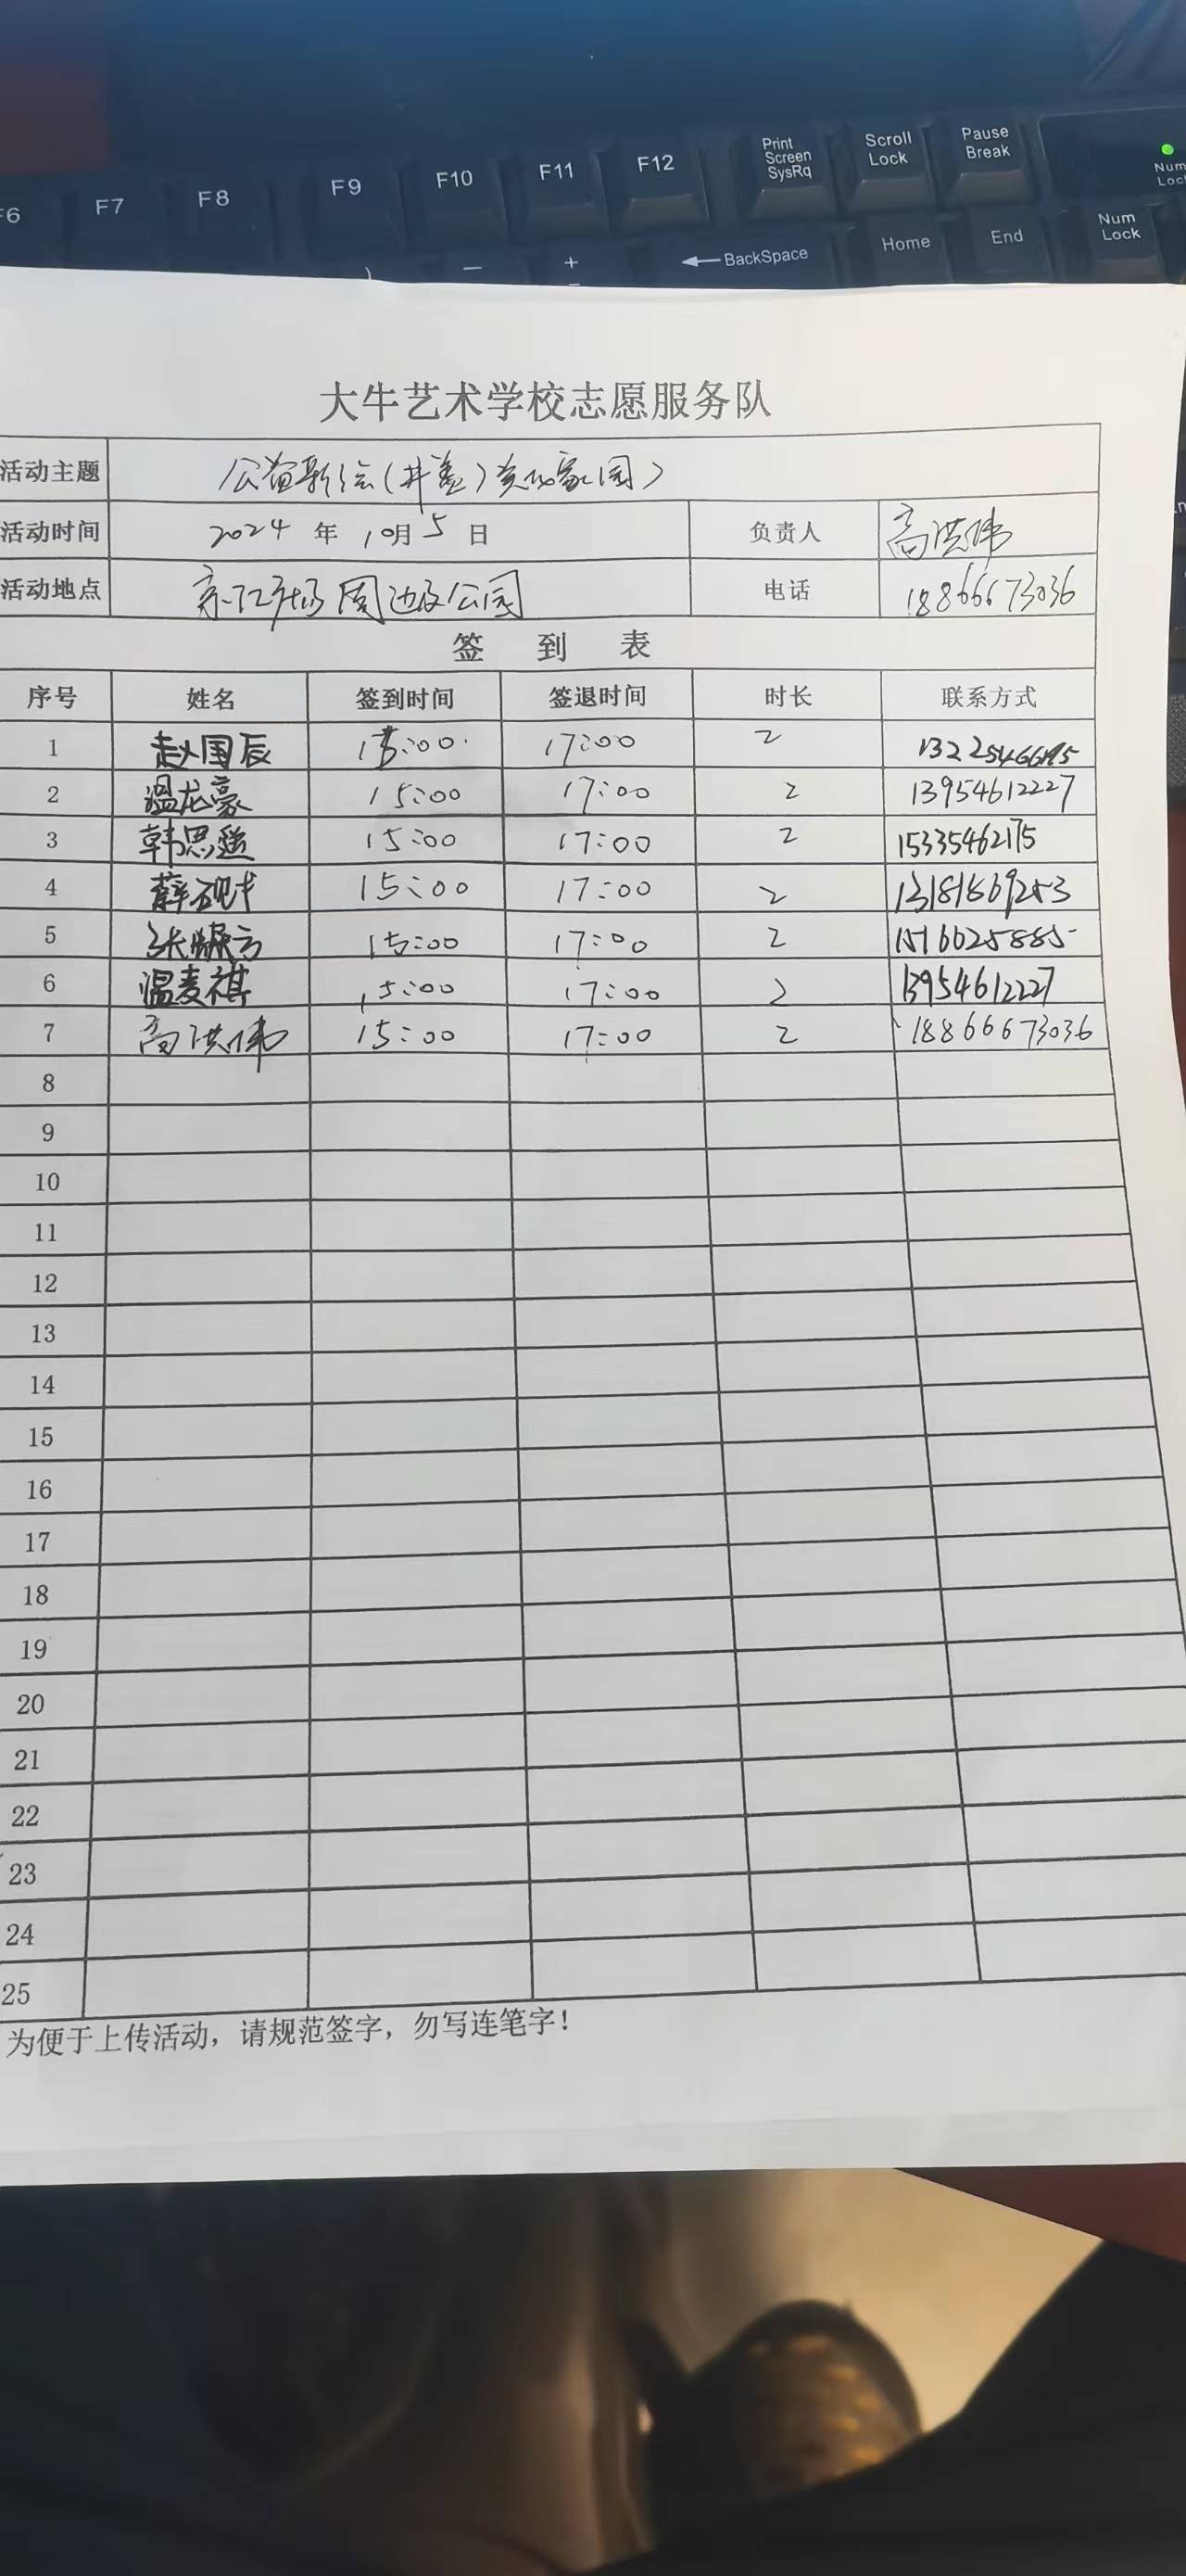 Print Screen SysRq
Scroll Lock
Pause Break
F6 F7 F8 F9 F10 F11 F12
Num Lock
← BackSpace Home End Num Lock
大牛艺术学校志愿服务队
活动主题 公益彩绘(井盖)美化家园
活动时间 2024 年 10月 5 日 负责人 高洪伟
活动地点 广场周边及公园 电话 18866673036
签 到 表
序号 姓名 签到时间 签退时间 时长 联系方式
1 赵国辰 15:00 17:00 2
2 温龙豪 15:00 17:00 2 13954612227
3 韩思遥 15:00 17:00 2 15335462175
4 薛砚 15:00 17:00 2
5 张 15:00 17:00 2
6 温麦祺 15:00 17:00 2 13954612227
7 高洪伟 15:00 17:00 2 18866673036
8
9
10
11
12
13
14
15
16
17
18
19
20
21
22
23
24
25
为便于上传活动，请规范签字，勿写连笔字！